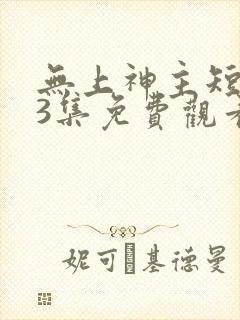 無上神主短
3集免費觀看
妮可·基德曼